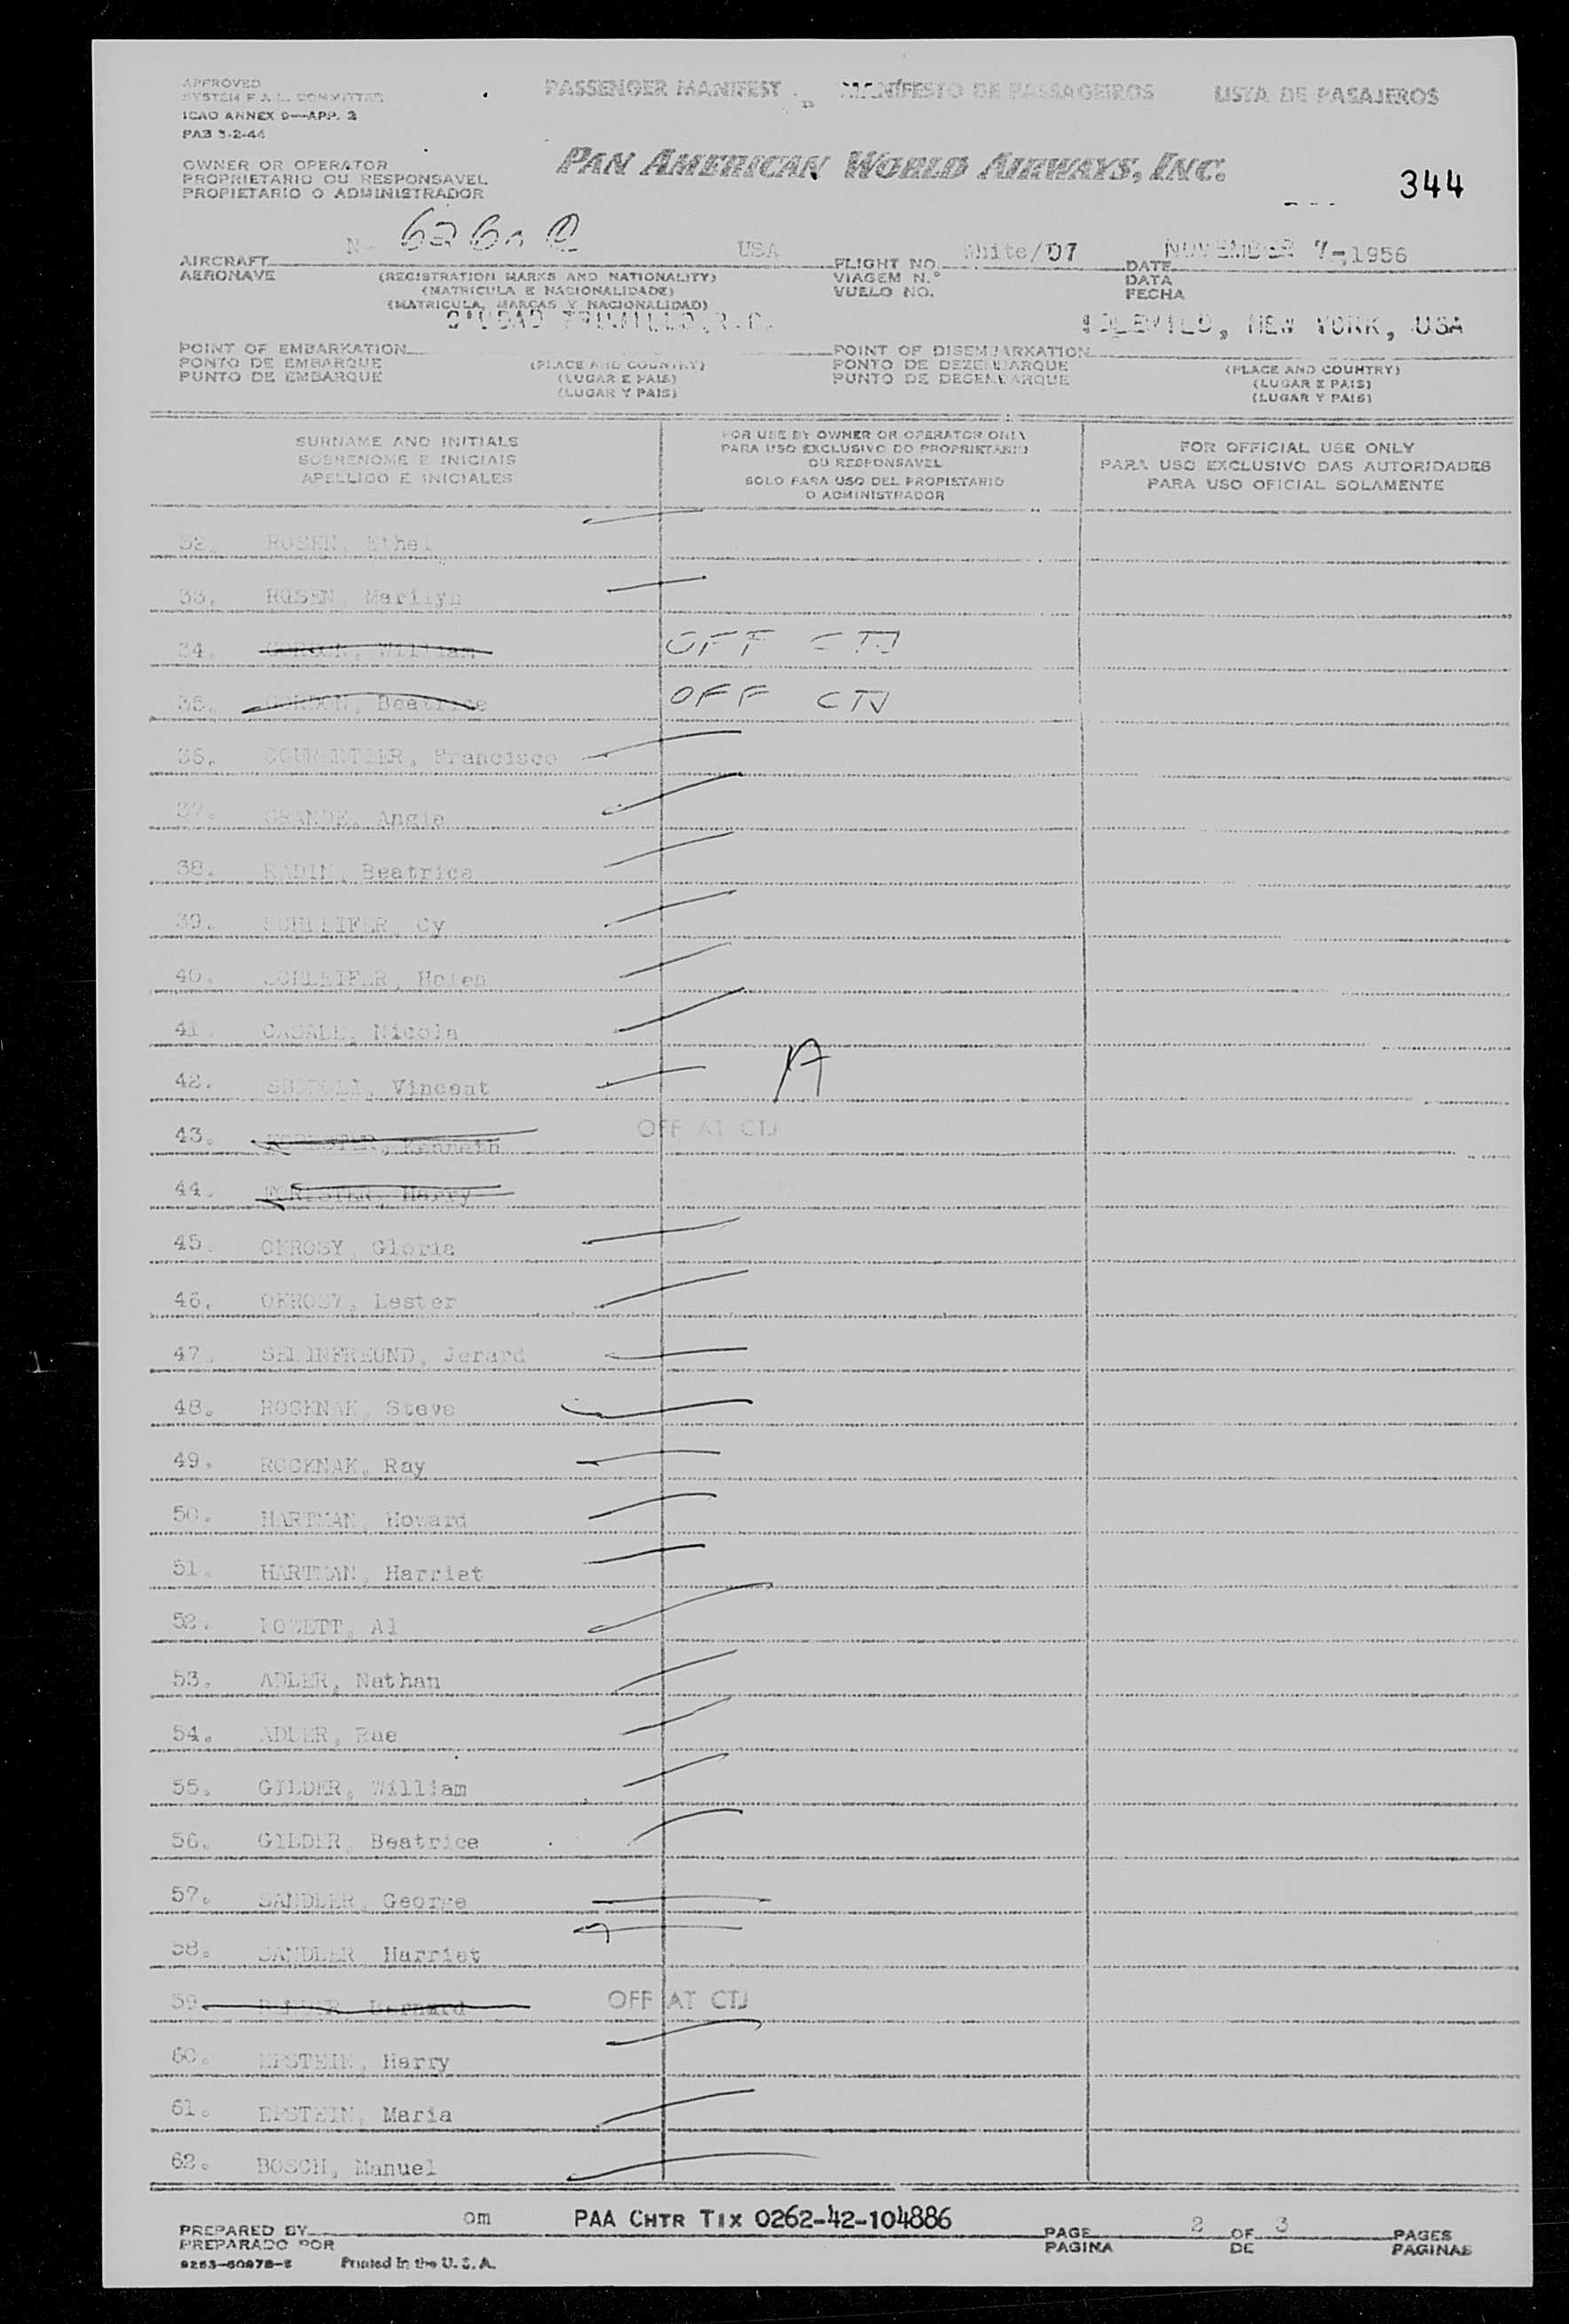 APPROVED
SYSTEM F.A.L. COMMITTEE
ICAO ANNEX 9—APP. 2
PAB 3-2-46
PASSENGER MANIFEST MANIFESTO DE PASSAGEIROS LISTA DE PASAJEROS
OWNER OR OPERATOR
PROPRIETARIO OU RESPONSAVEL
PROPIETARIO O ADMINISTRADOR
PAN AMERICAN WORLD AIRWAYS, INC.
344
AIRCRAFT N- USA
AERONAVE
(REGISTRATION MARKS AND NATIONALITY)
(MATRICULA E NACIONALIDADE)
(MATRICULA, MARCAS Y NACIONALIDAD)
FLIGHT NO. White/07
VIAGEM N.º
VUELO NO.
DATE NOVEMBER 7-,1956
DATA
FECHA
CIUDAD TRUJILLO,R.D.
IDLEWILD, NEW YORK, USA
POINT OF EMBARKATION
PONTO DE EMBARQUE
PUNTO DE EMBARQUE
(PLACE AND COUNTRY)
(LUGAR E PAIS)
(LUGAR Y PAIS)
POINT OF DISEMBARKATION
PONTO DE DEZEMBARQUE
PUNTO DE DESEMBARQUE
(PLACE AND COUNTRY)
(LUGAR E PAIS)
(LUGAR Y PAIS)
SURNAME AND INITIALS
SOBRENOME E INICIAIS
APELLIDO E INICIALES
FOR USE BY OWNER OR OPERATOR ONLY
PARA USO EXCLUSIVO DO PROPRIETARIO
OU RESPONSAVEL
SOLO PARA USO DEL PROPIETARIO
O ADMINISTRADOR
FOR OFFICIAL USE ONLY
PARA USO EXCLUSIVO DAS AUTORIDADES
PARA USO OFICIAL SOLAMENTE
32. ROSEN, Ethel
33. ROSEN, Marilyn
34. GORDON, William OFF CTJ
35. GORDON, Beatrice OFF CTJ
36. Francisco
37. GRANDE, Angie
38. RADIN, Beatrice
39. SCHLEIFER, Cy
40. SCHLEIFER, Helen
41. CASALE, Nicola
42. Vincent A
43. Kenneth OFF AT CTJ
44. FORISTER, Harry
45. OKROSY, Gloria
46. OKROSY, Lester
47. SELINFREUND, Jerard
48. ROCKNAK, Steve
49. ROCKNAK, Ray
50. HARTMAN, Howard
51. HARTMAN, Harriet
52. Al
53. ADLER, Nathan
54. ADLER, Rae
55. GILDER, William
56. GILDER, Beatrice
57. SANDLER, George
58. SANDLER, Harriet
59. Bernard OFF AT CTJ
60. EPSTEIN, Harry
61. EPSTEIN, Maria
62. BOSCH, Manuel
PREPARED BY om PAA CHTR TIX 0262-42-104886
PREPARADO POR
PAGE 2 OF 3 PAGES
PAGINA DE PAGINAS
Printed in the U.S.A.